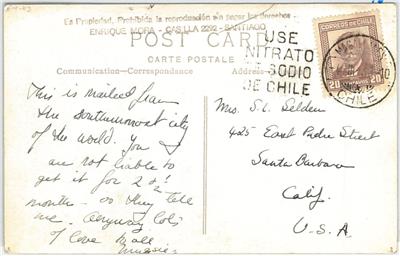 Es Propiedad, Prohibida la reproducción sin pagar los derechos
ENRIQUE MORA - CASILLA 2292 - SANTIAGO
POST CARD
CARTE POSTALE
Communication—Correspondance
Address
USE
NITRATO
DE SODIO
DE CHILE
CORREOS DE CHILE
20
20
CHILE
This is mailed from
the southernmost city
of the world. You
are not liable to
get it for 2 or
months - so they tell
me. Anyway lots
of love to all
Mrs. S. L. Selden
425 East Pedro Street
Santa Barbara
Calif.
U.S.A